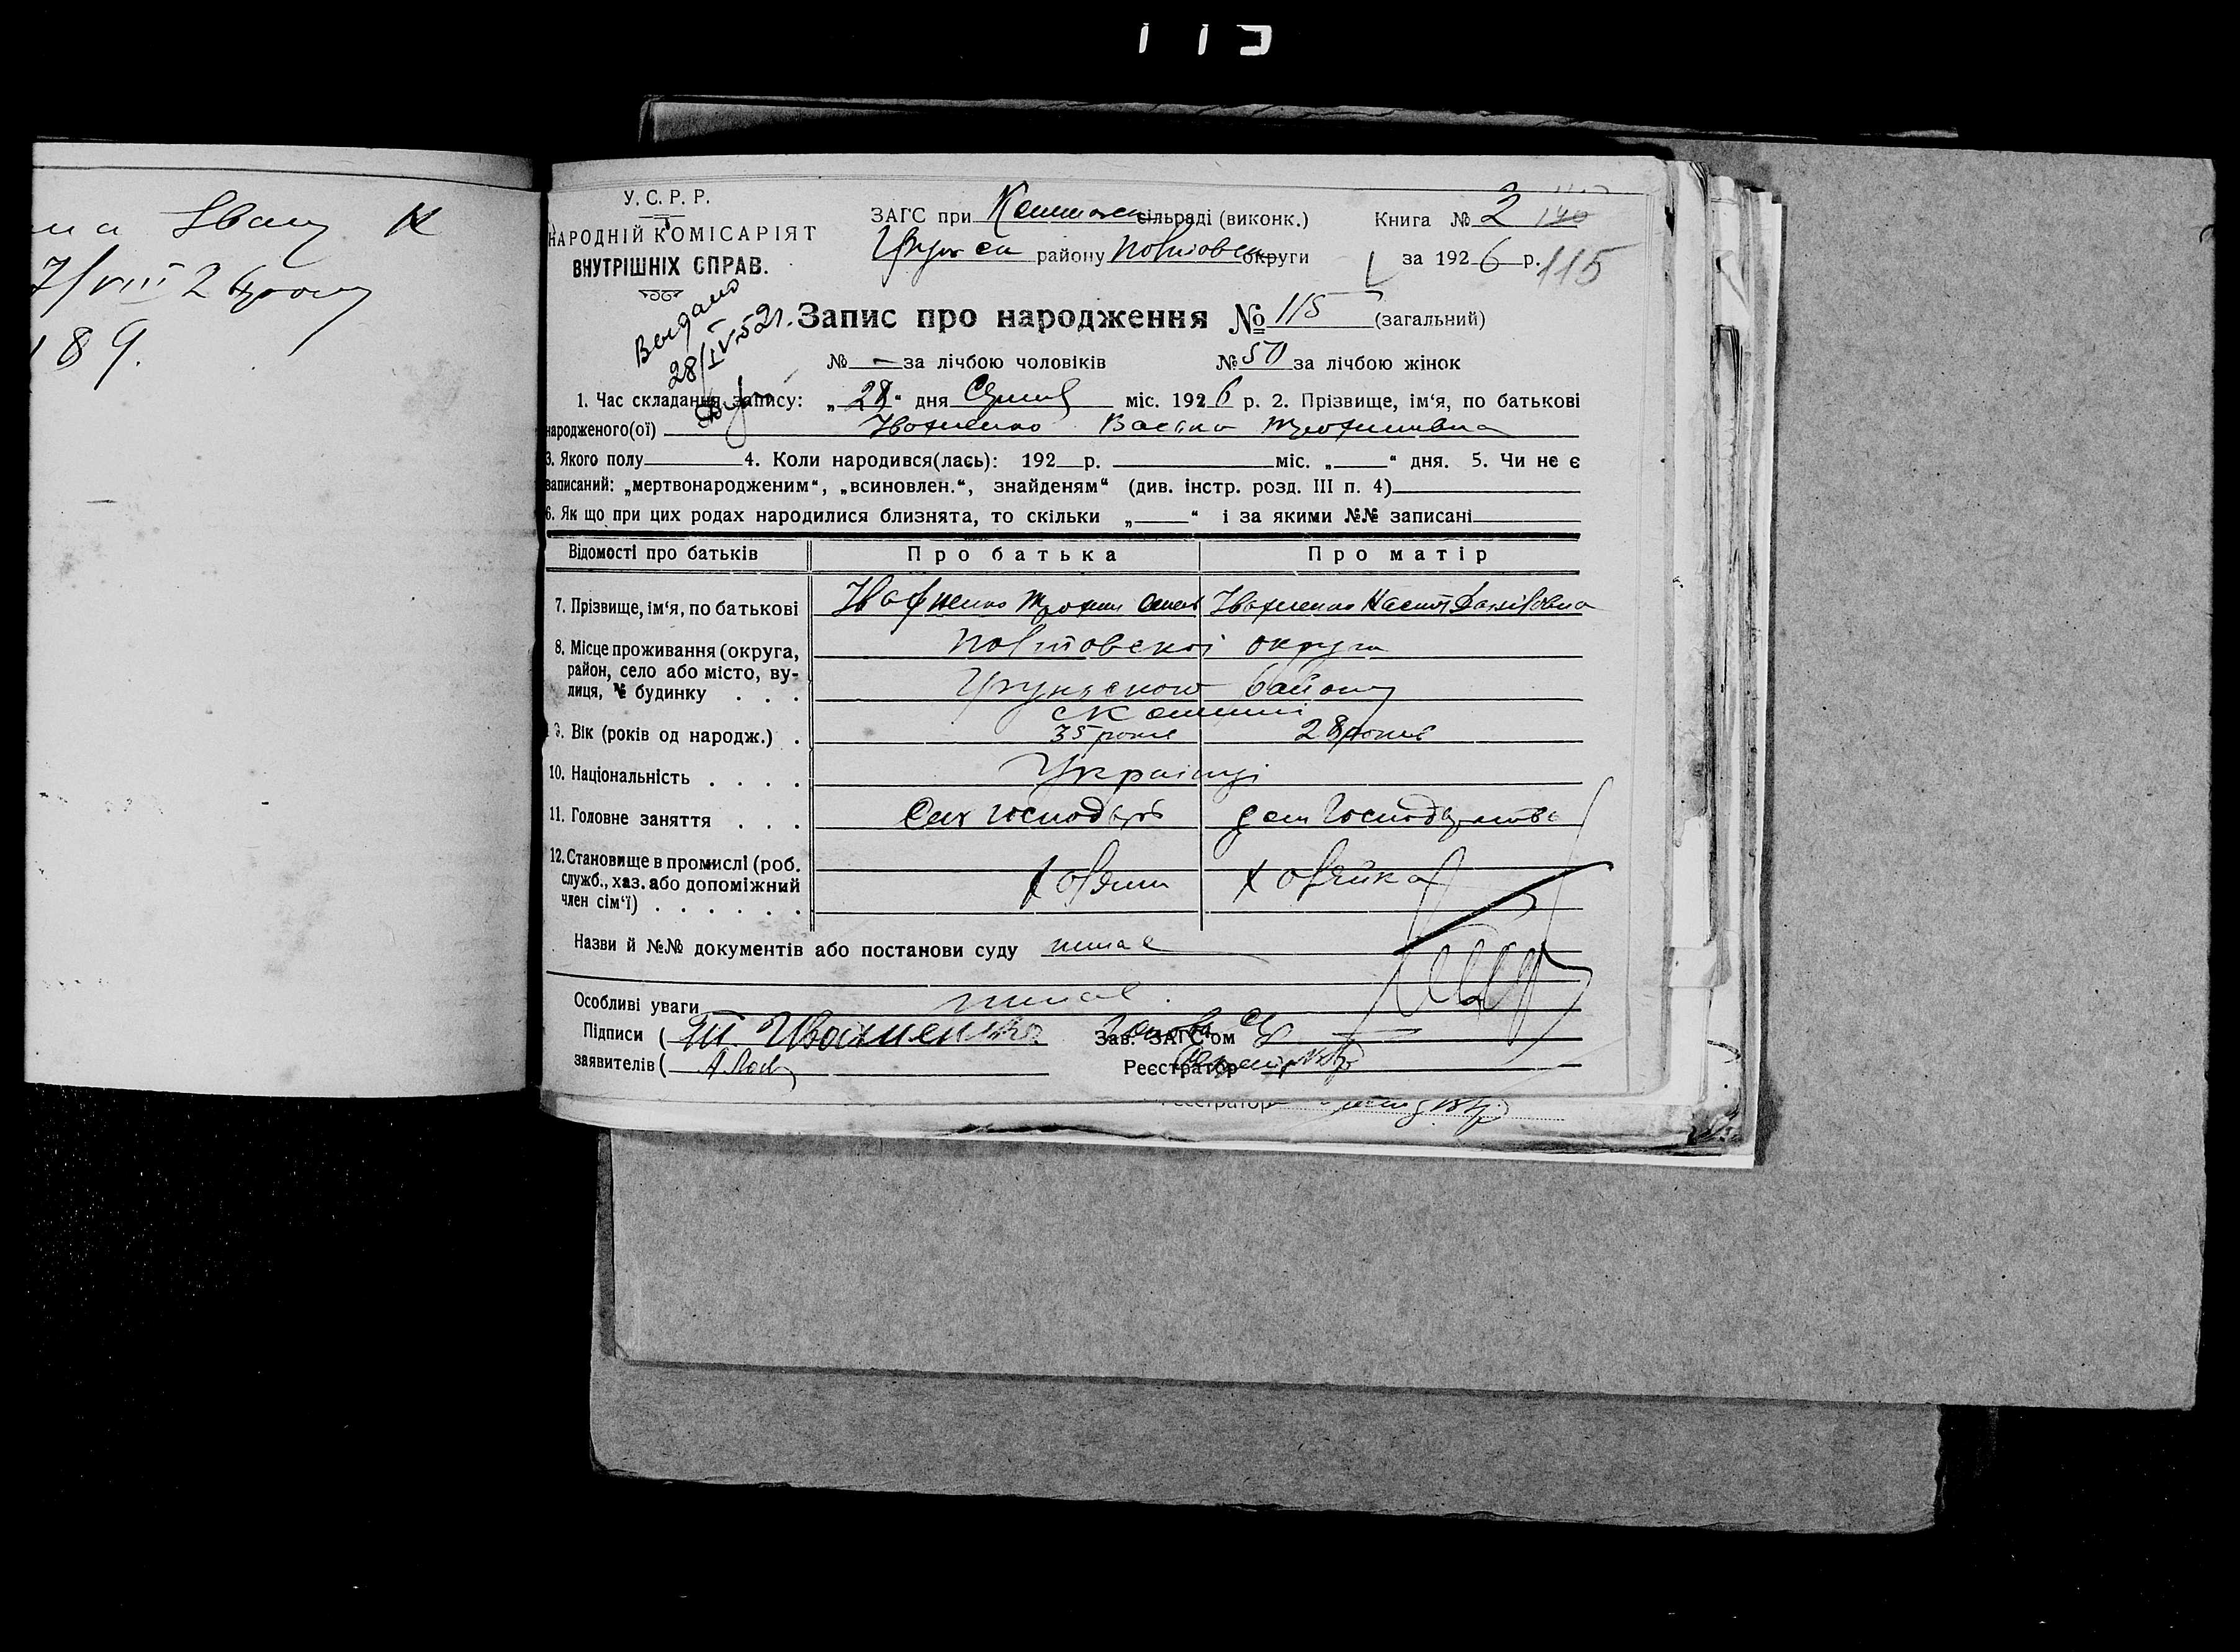 115
на Івану К
7/VIII 26 року
189.
У. С. Р. Р.
НАРОДНІЙ КОМІСАРІЯТ
ВНУТРІШНІХ СПРАВ.
Выдано
28/IV-52г.
ЗАГС при сільраді (виконк.)
району Полтовськ округи
Книга № 2 140
за 1926 р. 115
Запис про народження № 115 (загальний)
№ — за лічбою чоловіків № 50 за лічбою жінок
1. Час складання запису: „28“ дня Серпня міс. 1926 р. 2. Прізвище, ім‘я, по батькові
народженого(ої) Івахненко Трохимивна
3. Якого полу 4. Коли народився(лась): 192 р. міс. „ “ дня. 5. Чи не є
записаний: „мертвонародженим“, „всиновлен.“, знайденям“ (див. інстр. розд. III п. 4)
6. Як що при цих родах народилися близнята, то скільки „ “ і за якими №№ записані
Відомості про батьків Про батька Про матір
7. Прізвище, ім‘я, по батькові Івахненко Трохим Івахненко Настя Даніловна
8. Місце проживання (округа, Полтовскоі округи
район, село або місто, ву-
лиця, № будинку . . . району
9. Вік (років од народж.) . 35 років 28 років
10. Національність . . . . Українці
11. Головне заняття . . . Сил господар дом Господарство
12. Становище в промислі (роб.
служб., хаз. або допоміжний Хозяин Хозяйка
член сім‘ї) . . . . . .
Назви й №№ документів або постанови суду немає
Особливі уваги немає
Підписи ( Т. Івахненко Зав. ЗАГС‘ом
заявителів ( Реєстратор
Реєстратор